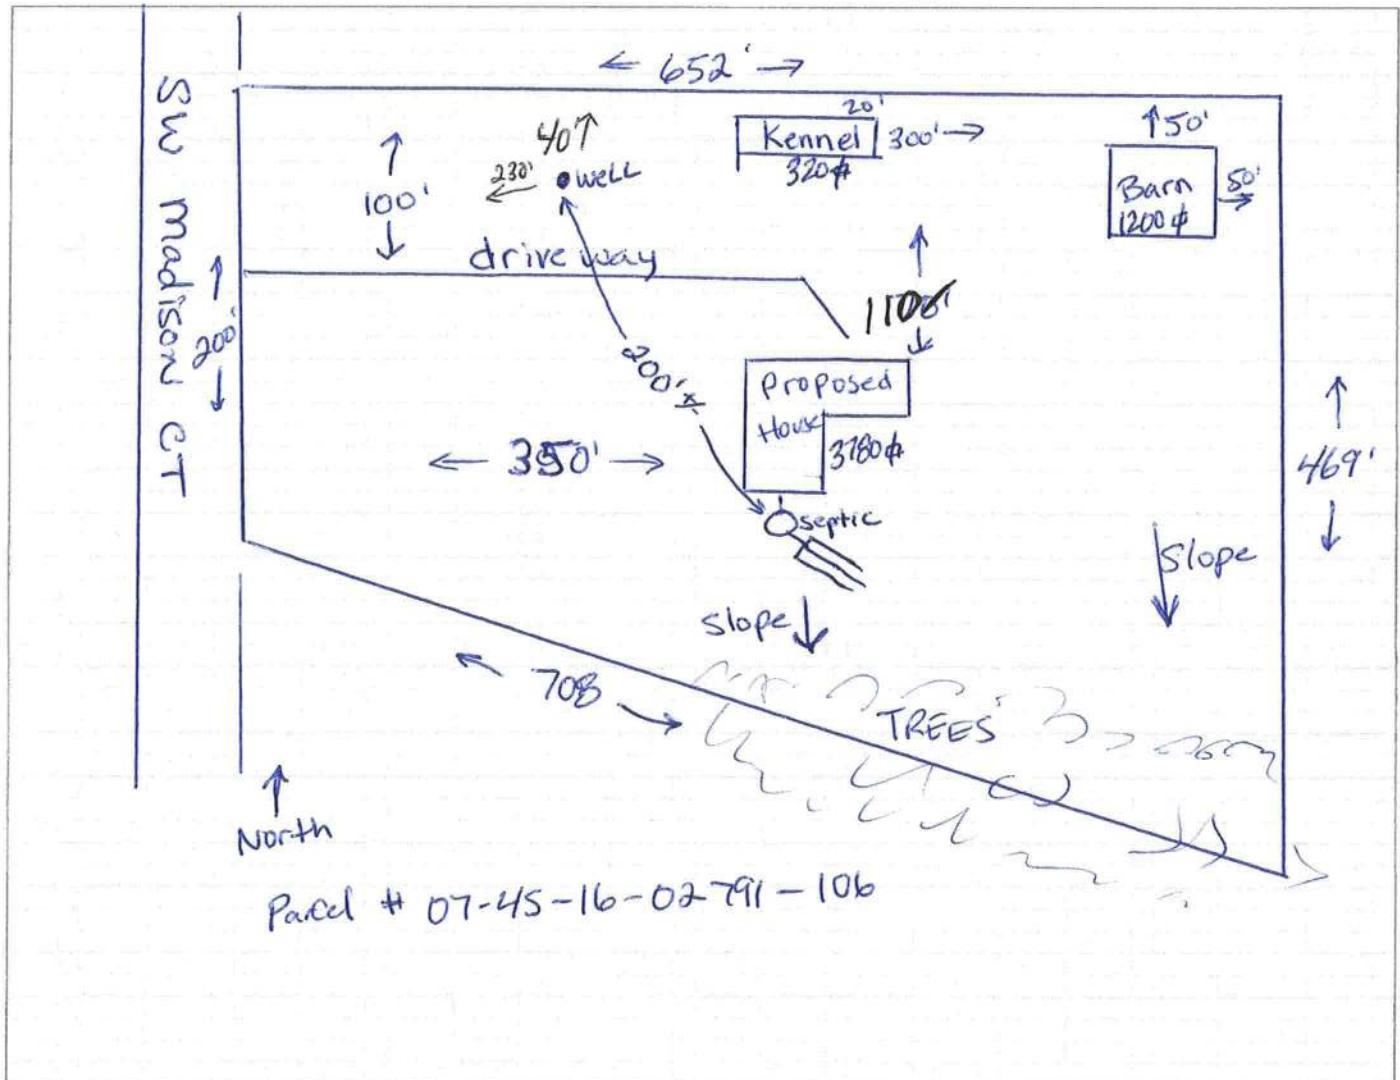 SW Madison CT
652'
20'
Kennel
320¢
300'
50'
Barn
1200¢
50'
40'
230'
well
100'
driveway
200'
200'
Proposed
House
3780¢
350'
septic
469'
slope
slope
708
TREES
North
Parcel # 07-45-16-02791-106